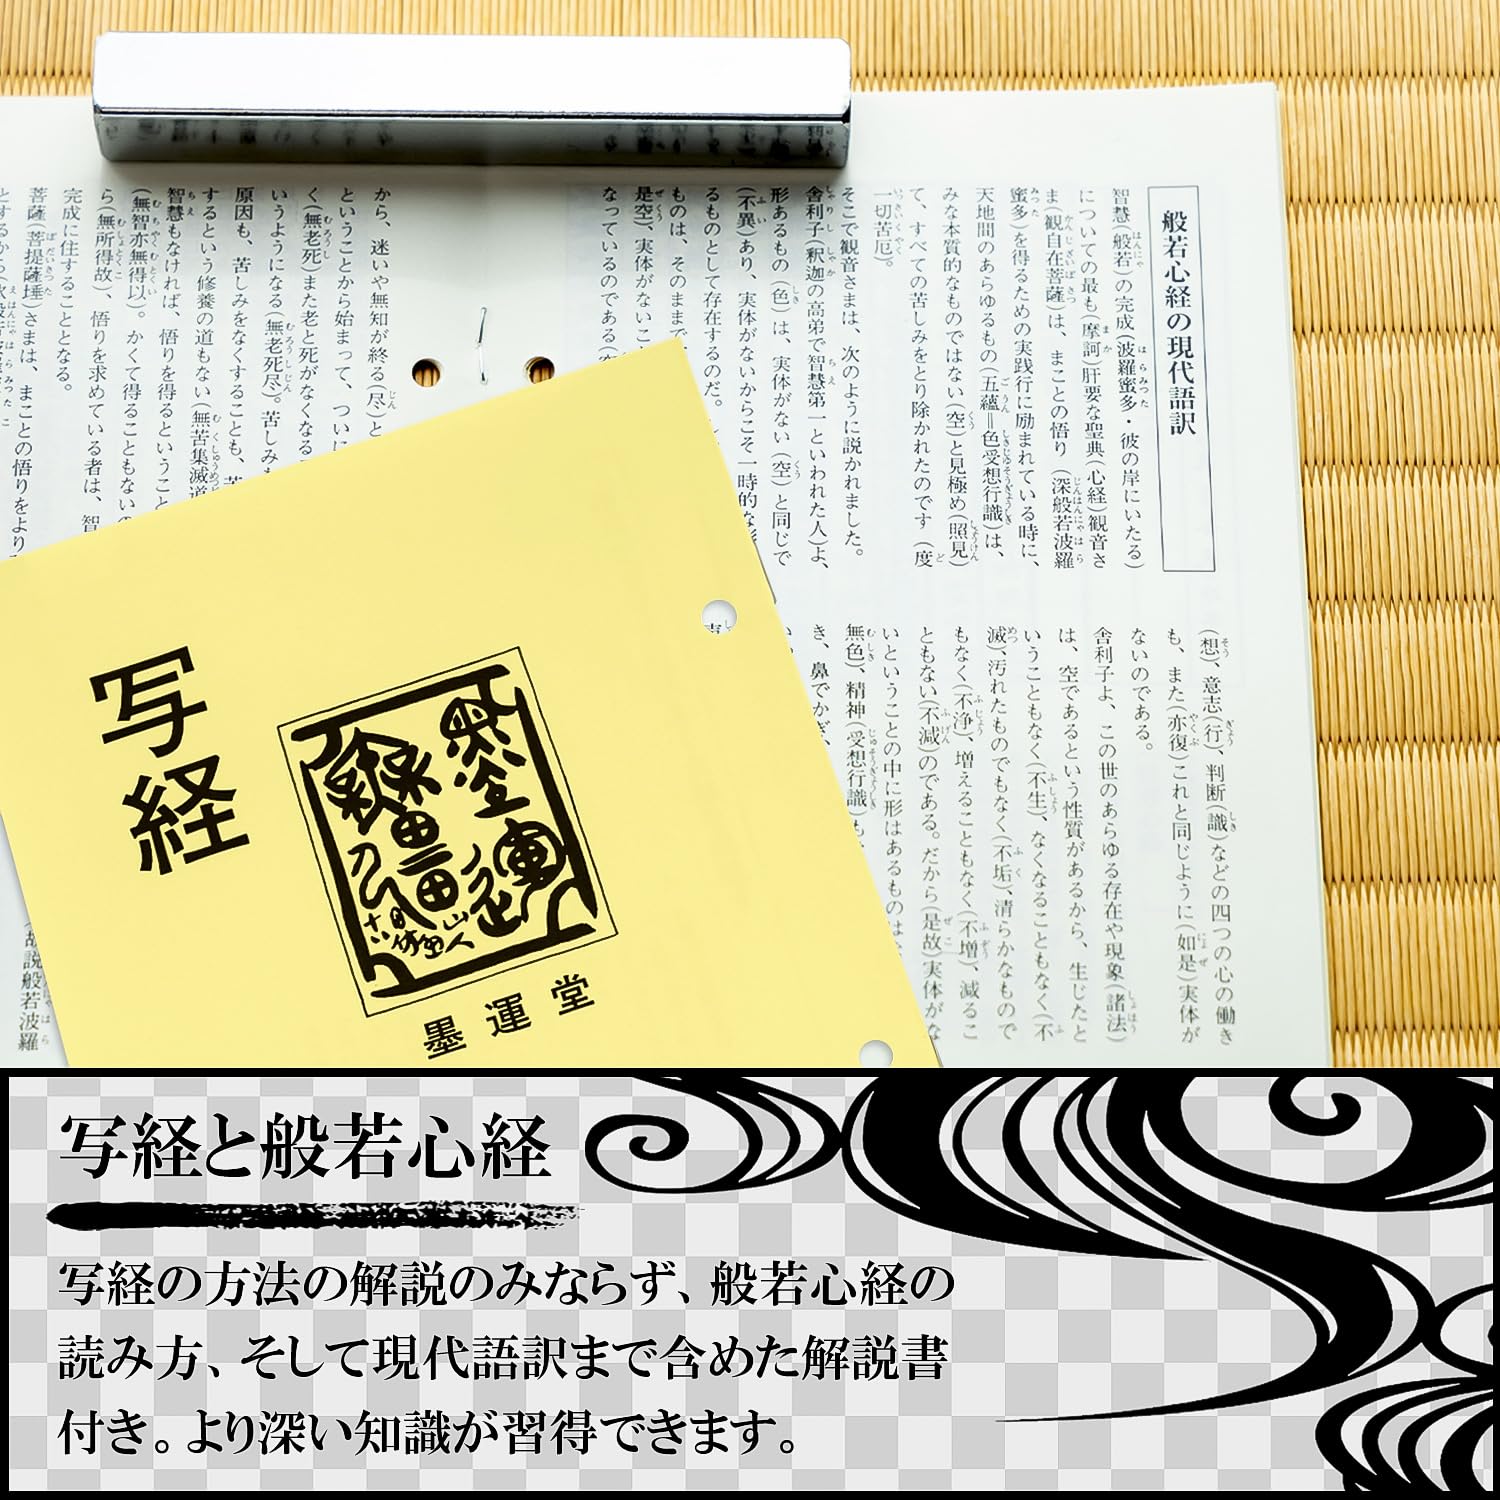 般若心経の現代語訳
智慧(般若)の完成(波羅蜜多・彼の岸にいたる)
についての最も(摩訶)肝要な聖典(心経)観音さ
ま(観自在菩薩)は、まことの悟り(深般若波羅
蜜多)を得るための実践行に励まれている時に、
天地間のあらゆるもの(五蘊=色受想行識)は、
みな本質的なものではない(空)と見極め(照見)
て、すべての苦しみをとり除かれたのです(度
一切苦厄)。
そこで観音さまは、次のように説かれました。
舎利子(釈迦の高弟で智慧第一といわれた人)よ、
形あるもの(色)は、実体がない(空)と同じで
(不異)あり、実体がないからこそ一時的な
るものとして存在するのだ。
ものは、そのままで
是空)、実体がないこ
なっているのである
(想)、意志(行)、判断(識)などの四つの心の働き
も、また(亦復)これと同じように(如是)実体が
ないのである。
舎利子よ、この世のあらゆる存在や現象(諸法)
は、空であるという性質があるから、生じたと
いうこともなく(不生)、なくなることもなく(不
滅)、汚れたものでもなく(不垢)、清らかなもので
もなく(不浄)、増えることもなく(不増)、減るこ
ともない(不減)のである。だから(是故)実体がな
いということの中に形はあるものは
無色)、精神(受想行識)も
き、鼻でかぎ、
から、迷いや無知が終る(尽)と
ということから始まって、ついに
く(無老死)また老と死がなくなる
いうようになる(無老死尽)。苦しみ
原因も、苦しみをなくすることも、
するという修養の道もない(無苦集滅道
智慧もなければ、悟りを得るということ
(無智亦無得以)。かくて得ることもないの
ら(無所得故)、悟りを求めている者は、智
完成に住することとなる。
菩薩(菩提薩埵)さまは、まことの悟りをより
故説般若波羅
写経
墨運堂
写経と般若心経
写経の方法の解説のみならず、般若心経の
読み方、そして現代語訳まで含めた解説書
付き。より深い知識が習得できます。